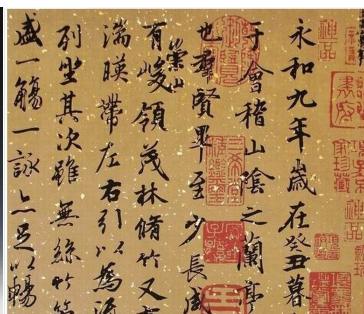 永和九年歲在癸丑暮
于會稽山陰之蘭亭
也羣賢畢至少長咸
崇山
有峻領茂林脩竹又
湍暎帶左右引以為流
列坐其次雖無絲竹管
盛一觴一詠亦足以暢